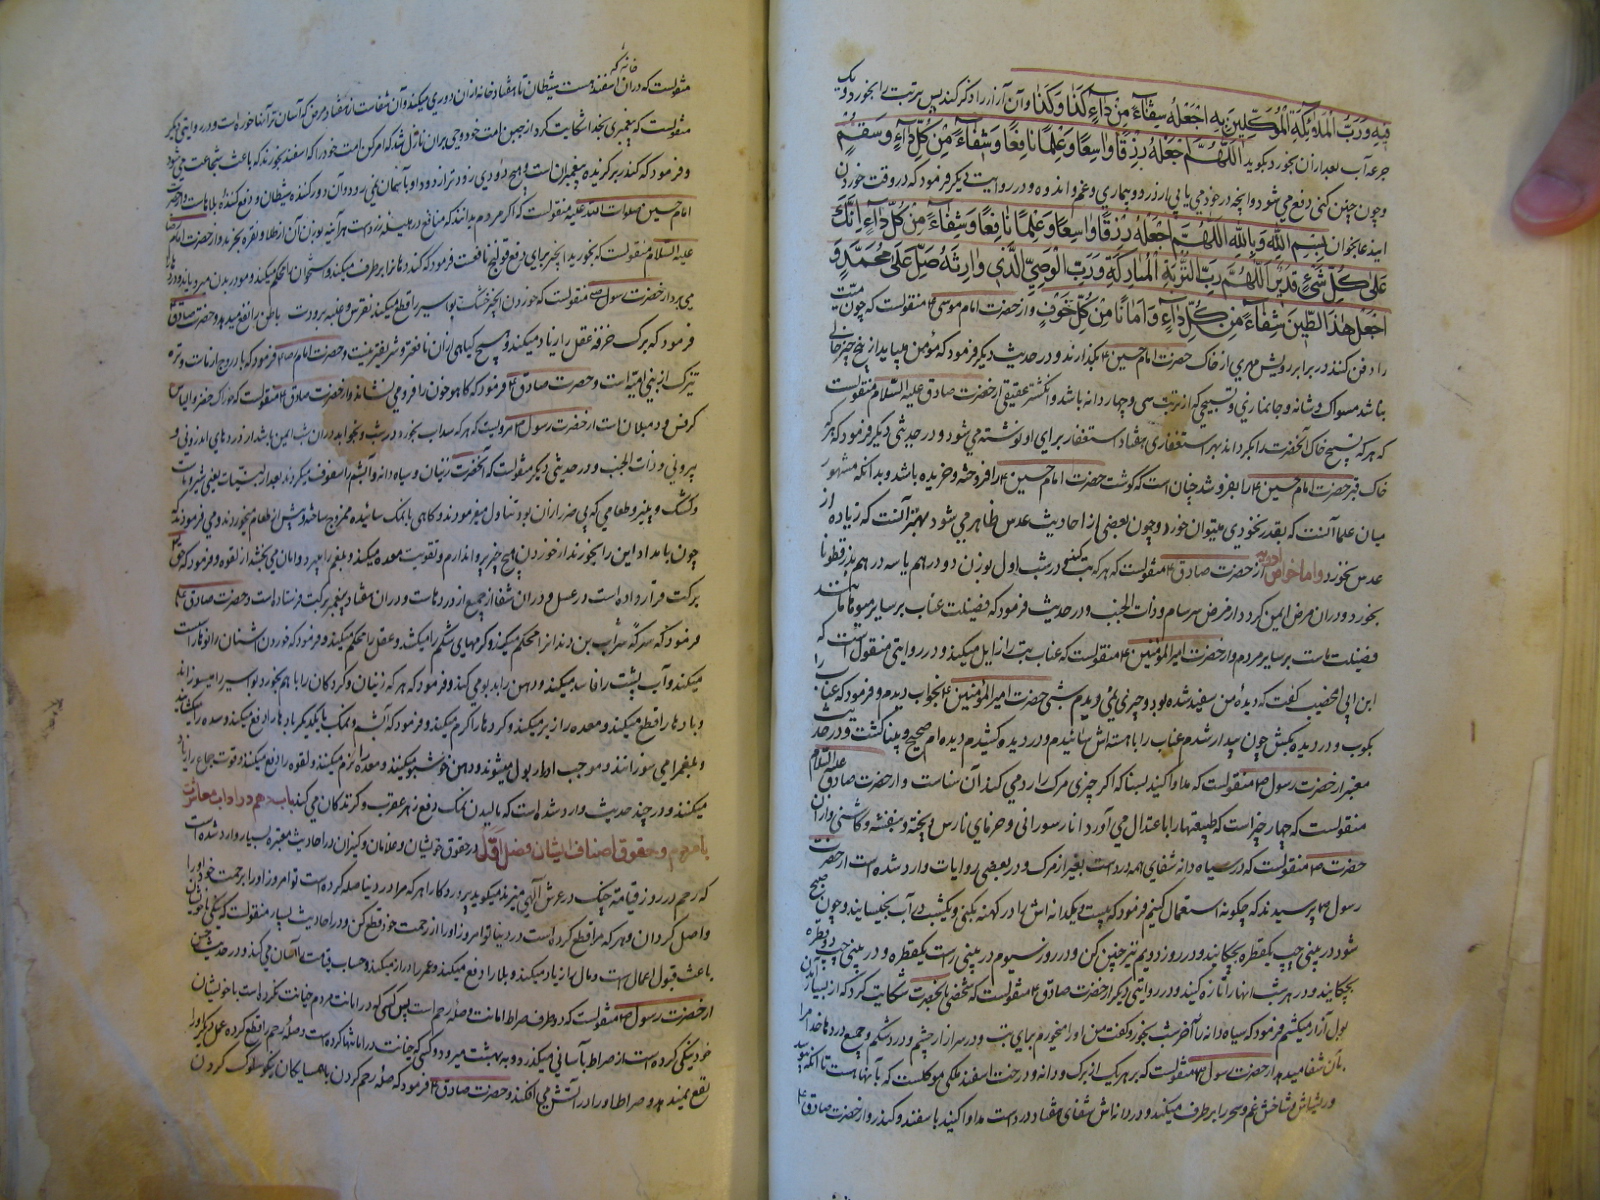 فيه ورب الملائكة الموكلين به اجعله شفاء من داء كذا وكذا وآن آزار را ذکر کند پس هر تربت را بخورد و یک
جرعه آب بعد از آن بخورد و بگوید اللهم اجعله رزقا واسعا وعلما نافعا وشفاء من كل داء وسقم
و چون چنین کنی دفع می شود و آنچه در خود می یابی از درد و بیماری و غم و اندوه و در روایت دیگر فرمود که در وقت خوردن
این دعا بخوان بسم الله وبالله اللهم اجعله رزقا واسعا وعلما نافعا وشفاء من كل داء انك
على كل شيء قدير اللهم رب التربة المباركة ورب الوصي الذي وارثه صل على محمد و
اجعل هذا الطين شفاء من كل داء وامانا من كل خوف و از حضرت امام موسی ع منقولست که چون میت
را دفن کنند در برابر رویش مهری از خاک حضرت امام حسین ع بگذارند و در حدیث دیگر فرمود که مؤمن میباید از پنج چیز خالی
نباشد مسواک و شانه و جانمازی و تسبیحی که از تربت سی و چهار دانه باشد و انگشتر عقیقی از حضرت صادق علیه السلام منقولست
که هر که تسبیح خاک آنحضرت را بگرداند بهر استغفاری هفتاد استغفار برای او نوشته می شود و در حدیثی دیگر فرمود که هر که
خاک قبر حضرت امام حسین ع را بفروشد چنان است که گوشت حضرت امام حسین ع را فروخته و خریده باشد و بدانکه مشهور
میان علما آنست که بقدر نخودی میتوان خورد و چون بعضی از احادیث عدس ظاهر می شود بهتر آنست که زیاده از
عدس نخورد و اما خواص ادویه از حضرت صادق ع منقولست که هر که تب کند در شب اول بوزن دو درهم یا سه درهم بذر قطونا
بخورد و در آن مرض ایمن گردد از مرض سرسام و ذات الجنب و در حدیث فرمود که فضیلت عناب بر سایر میوها مانند
فضیلت ماست بر سایر مردم و از حضرت امیر المؤمنین ع منقولست که عناب تب را زایل میکند و در روایتی منقول است که
ابن ابی الخضیب گفت که دیده من سفید شده بود و چیزی نمی دیدم شبی حضرت امیر المؤمنین ع بخواب دیدم و فرمود که عناب را
بکوب و در دیده بکش چون بیدار شدم عناب را با هسته اش سائیدم و در دیده کشیدم دیده ام صحیح و بینا گشت و در حدیث
معتبر از حضرت رسول ص منقولست که مداوا کنید بسنا که اگر چیزی مرگ را رد می کند آن سناست و از حضرت صادق علیه السلام
منقولست که چهار چیز است که طبیعتها را با اعتدال می آورد انار سورانی و خرمای نارس و پخته و بنفشه و کاسنی و از آن
حضرت ص منقولست که در سیاه دانه شفای همه دردست بغیر از مرگ و در بعضی روایات وارد شده است از حضرت
رسول ص پرسیدند که چگونه استعمال کنیم فرمود که بیست و یکدانه اش را در کهنه بکنی و یکشب در آب بخیسانید و چون صبح
شود در بینی چپ یکقطره بچکانید و در روز دویم نیز چنین کن و در روز سیوم در بینی راست یکقطره و در بینی چپ دو قطره
بچکانید و در هر شب انها را تازه کنید و در روایتی دیگر از حضرت صادق ع منقولست که شخصی بآنحضرت شکایت کرد که از بسیاری
بول آزار میکشم فرمود که سیاه دانه را آخر شب بخور و گفت من او را میخورم برای تب و درد سر و آزار چشم و درد شکم و جمیع دردها خدا مرا
بآن شفا میدهد و از حضرت رسول ص منقولست که بر هر یک از برگ و دانه درخت اسفند ملکی موکلست که بآنها هست تا آنکه بپوسد
و ریشه اش و شاخش غم و سحر را برطرف میکند و در دانه اش شفای هفتاد درد است مداوا کنید باسفند و کندر و از حضرت صادق ع
خانه که
منقولست که در آن اسفند هست شیطان تا هفتاد خانه از آن دوری میکند و آن شفاست از هفتاد مرض که آسان تر آنها خوره است و در روایتی دیگر
منقولست که پیغمبری بخدا شکایت کرد از جبن امت خود وحی بر آن نازل شد که امر کن امت خود را که اسفند بخورند که باعث شجاعت می شود
و فرمود که کندر برگزیده پیغمبران است و هیچ دودی زودتر از دود او بآسمان نمی رود و آن دور کننده شیطان و دفع کننده بلاهاست و از حضرت
امام حسین صلوات الله علیه منقولست که اگر مردم بدانند که منافع در هلیله زرد است هر آینه بوزن آن از طلا و نقره بخرند و از حضرت امام رضا
علیه السلام منقولست که بخورید انجیر برای دفع قولنج نافعست فرمود که گند دهان را برطرف میکند و استخوان را محکم میکند و مو در بدن میرویاند و درد
می برد از حضرت رسول ص منقولست که خوردن انجیر خشک بواسیر را قطع میکند و نقرس و غلبه برودت باطن را نفع میدهد و حضرت صادق ع
فرمود که برگ خرفه عقل را زیاد میکند و هیچ گیاهی از آن نافعتر و شریفتر نیست و حضرت امام ع فرمود که باد روج از ماست و تره
تیزک از بنی امیه است و حضرت صادق ع فرمود که کاهو خون را فرو می نشاند و از حضرت صادق ع منقولست که خوراک خضر و الیاس
کرفس و دمبلان است از حضرت رسول ص مرویست که هر که سداب بخورد در شب و بخوابد در آن شب ایمن باشد از دردهای اندرونی و
بیرونی و ذات الجنب و در حدیثی دیگر منقولست که آنحضرت زنیان و سیاه دانه و آبشم را سفوف میکردند بعد از لبنیات یعنی شیر و ماست
و کشک و پنیر و طعامی که بی ضرر از آن بود تناول میفرمودند و گاهی با نمک سائیده ممزوج ساخته و پیش از طعام میخوردند و می فرمود که
چون بامداد این را بخورند از خوردن هیچ چیز پروا ندارم و تقویت معده میکند و بلغم را میبرد و امان می بخشد از لقوه و فرمود که حق ع
برکت قرار داده است در عسل و در آن شفا از جمیع از دردهاست و در آن هفتاد پیغمبر برکت فرستاده است و حضرت صادق ع
فرمود که سرکه شراب بن دندان را محکم میکند و کرمهای شکم را میکشد و عقل را محکم میکند و فرمود که خوردن اشنان زانوها را سست
میکند و آب پشت را فاسد میکند و دهن را بد بو می کند و فرمود که هر که زنیان و گردکان را با هم بخورد بواسیر را میسوزاند
و بادها را قطع میکند و معده را ازبر میکند و گردها را گرم میکند و فرمود که آبشم و نمک بایکدیگر بادها را دفع میکند و سده را میگشاید
و بلغم را می سوزانند و موجب ادرار بول میشوند و دهن خوشبو میکنند و معده را نرم میکنند و لقوه را دفع میکند و قوت جماع را زیاد
میکنند و در چند حدیث وارد شده است که مالیدن نمک دفع زهر عقرب و گزندگان می کند باب دهم در اداب معاشرت
با مردم و حقوق اصناف ایشان فصل اول در حقوق خویشان و غلامان و کنیزان در احادیث معتبره بسیار وارد شده است
که رحم در روز قیامت چنگ در عرش الهی میزند میگوید پروردکارا هر که مرا در دنیا صله کرده است تو امروز او را برحمت خود او را
واصل گردان و هر که مرا قطع کرده است در دنیا تو امروز او را از رحمت خود قطع کن و در احادیث بسیار منقولست که نیکی با خویشان
باعث قبول اعمال است و مال را زیاد میکند و بلا را دفع میکند و عمر را دراز میکند و حساب قیامت را آسان می کند و در حدیث حسن
از حضرت رسول ص منقولست که در دو طرف صراط امانت و صله رحم است پس کسی که در امانت مردم خیانت نکرده است با خویشان
خود نیکی کرده است از صراط بآسانی میگذرد و به بهشت میرود و کسی که خیانت در امانتها کرده است و صله رحم را قطع کرده عمل دیگر او را
نفع نمیدهد و صراط او را در آتش می افکند و حضرت صادق ع فرمود که صله رحم کردن با همسایگان نیکو سلوک کردن